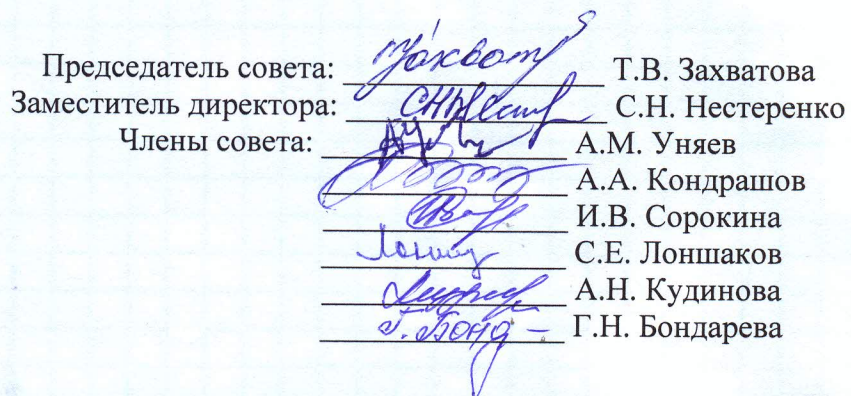 Председатель совета: Т.В. Захватова
Заместитель директора: С.Н. Нестеренко
Члены совета: А.М. Уняев
А.А. Кондрашов
И.В. Сорокина
С.Е. Лоншаков
А.Н. Кудинова
Г. Бонд – Г.Н. Бондарева